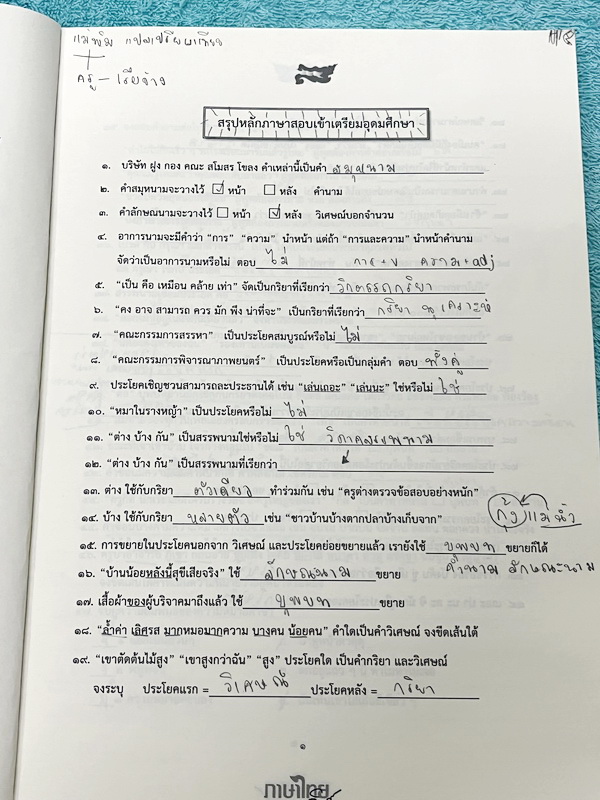 แม่พิม แปลเปรียบเทียบ
ครู - เรือจ้าง
สรุปหลักภาษาสอบเข้าเตรียมอุดมศึกษา
๑. บริษัท ฝูง กอง คณะ สโมสร โขลง คำเหล่านี้เป็นคำ สมุหนาม
๒. คำสมุหนามจะวางไว้ ☑ หน้า ☐ หลัง คำนาม
๓. คำลักษณนามจะวางไว้ ☐ หน้า ☑ หลัง วิเศษณ์บอกจำนวน
๔. อาการนามจะมีคำว่า "การ" "ความ" นำหน้า แต่ถ้า "การและความ" นำหน้าคำนาม
จัดว่าเป็นอาการนามหรือไม่ ตอบ ไม่ การ+v ความ+adj
๕. "เป็น คือ เหมือน คล้าย เท่า" จัดเป็นกริยาที่เรียกว่า วิกตรรถกริยา
๖. "คง อาจ สามารถ ควร มัก พึง น่าที่จะ" เป็นกริยาที่เรียกว่า กริยานุเคราะห์
๗. "คณะกรรมการสรรหา" เป็นประโยคสมบูรณ์หรือไม่ ไม่
๘. "คณะกรรมการพิจารณาภาพยนตร์" เป็นประโยคหรือเป็นกลุ่มคำ ตอบ ทั้งคู่
๙. ประโยคเชิญชวนสามารถละประธานได้ เช่น "เล่นเถอะ" "เล่นนะ" ใช่หรือไม่ ใช่
๑๐. "หมาในรางหญ้า" เป็นประโยคหรือไม่ ไม่
๑๑. "ต่าง บ้าง กัน" เป็นสรรพนามใช่หรือไม่ ใช่ วิภาคสรรพนาม
๑๒. "ต่าง บ้าง กัน" เป็นสรรพนามที่เรียกว่า
๑๓. ต่าง ใช้กับกริยา ตัวเดียว ทำร่วมกัน เช่น "ครูต่างตรวจข้อสอบอย่างหนัก"
๑๔. บ้าง ใช้กับกริยา หลายตัว เช่น "ชาวบ้านบ้างตากปลาบ้างเก็บจาก" กุ้งแม่น้ำ
๑๕. การขยายในประโยคนอกจาก วิเศษณ์ และประโยคย่อยขยายแล้ว เรายังใช้ บุพบท ขยายก็ได้
คำนาม ลักษณะนาม
๑๖. "บ้านน้อยหลังนี้สุขีเสียจริง" ใช้ ลักษณนาม ขยาย
๑๗. เสื้อผ้าของผู้บริจาคมาถึงแล้ว ใช้ บุพบท ขยาย
๑๘. "ล้ำค่า เลิศรส มากหมอมากความ นางคน น้อยคน" คำใดเป็นคำวิเศษณ์ จงขีดเส้นใต้
๑๙. "เขาตัดต้นไม้สูง" "เขาสูงกว่าฉัน" "สูง" ประโยคใด เป็นคำกริยา และวิเศษณ์
จงระบุ ประโยคแรก = วิเศษณ์ ประโยคหลัง = กริยา
๑
ภาษาไทย